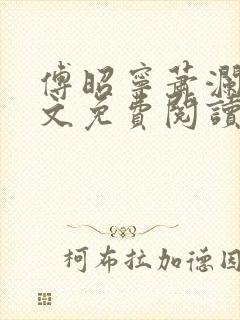 傅昭寧蕭瀾
文免費閱讀
柯布拉加德因